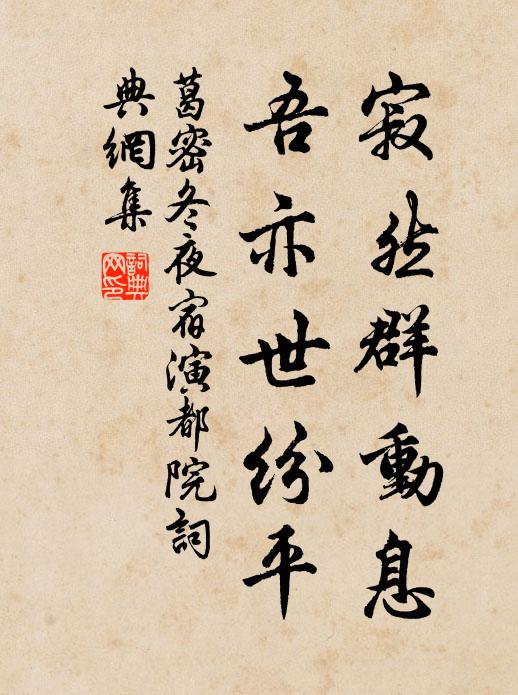 寂然群動息
吾亦世紛平
葛密冬夜宿演都院詞
典網集
詞典網印